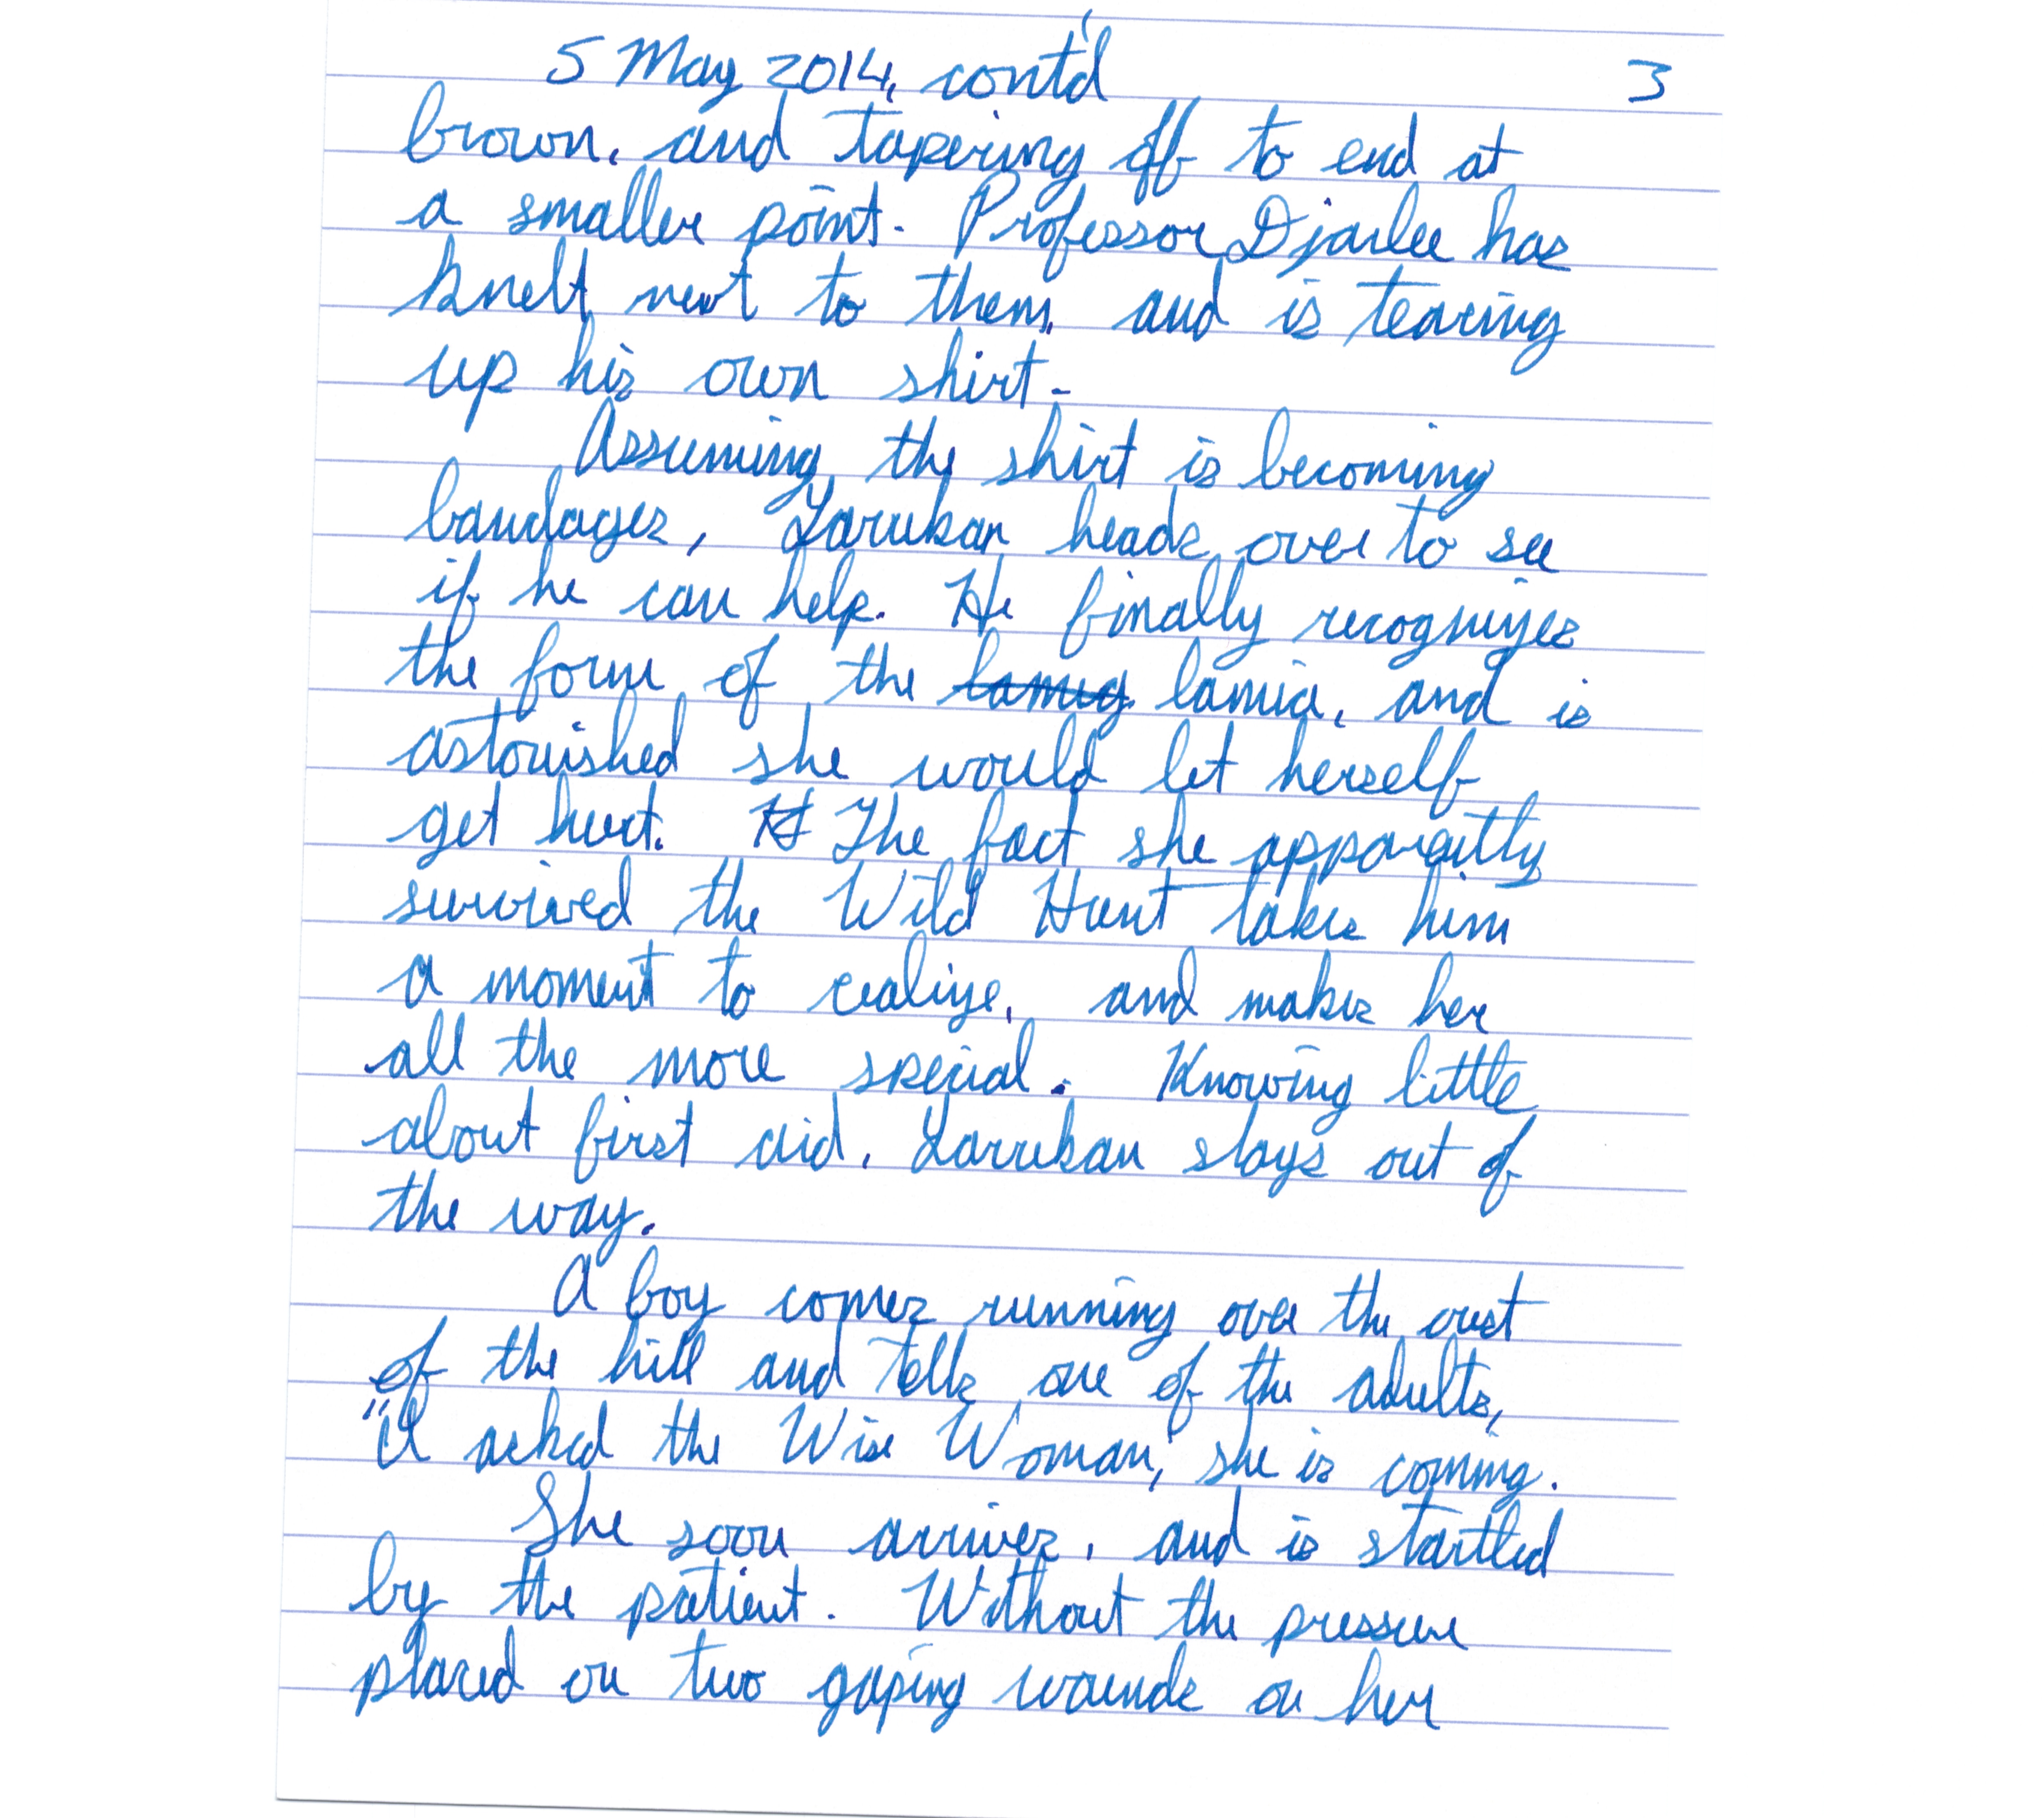 5 May 2014, cont'd 3
brown, and tapering off to end at
a smaller point. Professor Djarlee has
knelt next to them, and is tearing
up his own shirt.
Assuming the shirt is becoming
bandages, Larukan heads over to see
if he can help. He finally recognizes
the form of the lamia, and is
astonished she would let herself
get hurt. The fact she apparently
survived the Wild Hunt takes him
a moment to realize, and makes her
all the more special. Knowing little
about first aid, Larukan stays out of
the way.
A boy comes running over the crest
of the hill and tells one of the adults,
"I asked the Wise Woman, she is coming.
She soon arrives, and is startled
by the patient. Without the pressure
placed on two gaping wounds on her